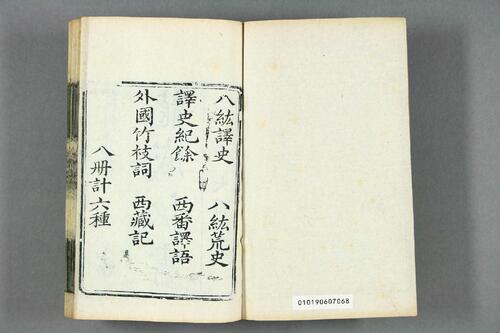 八紘譯史　八紘荒史
譯史紀餘　西番譯語
外國竹枝詞　西藏記
八册計六種
010190607068